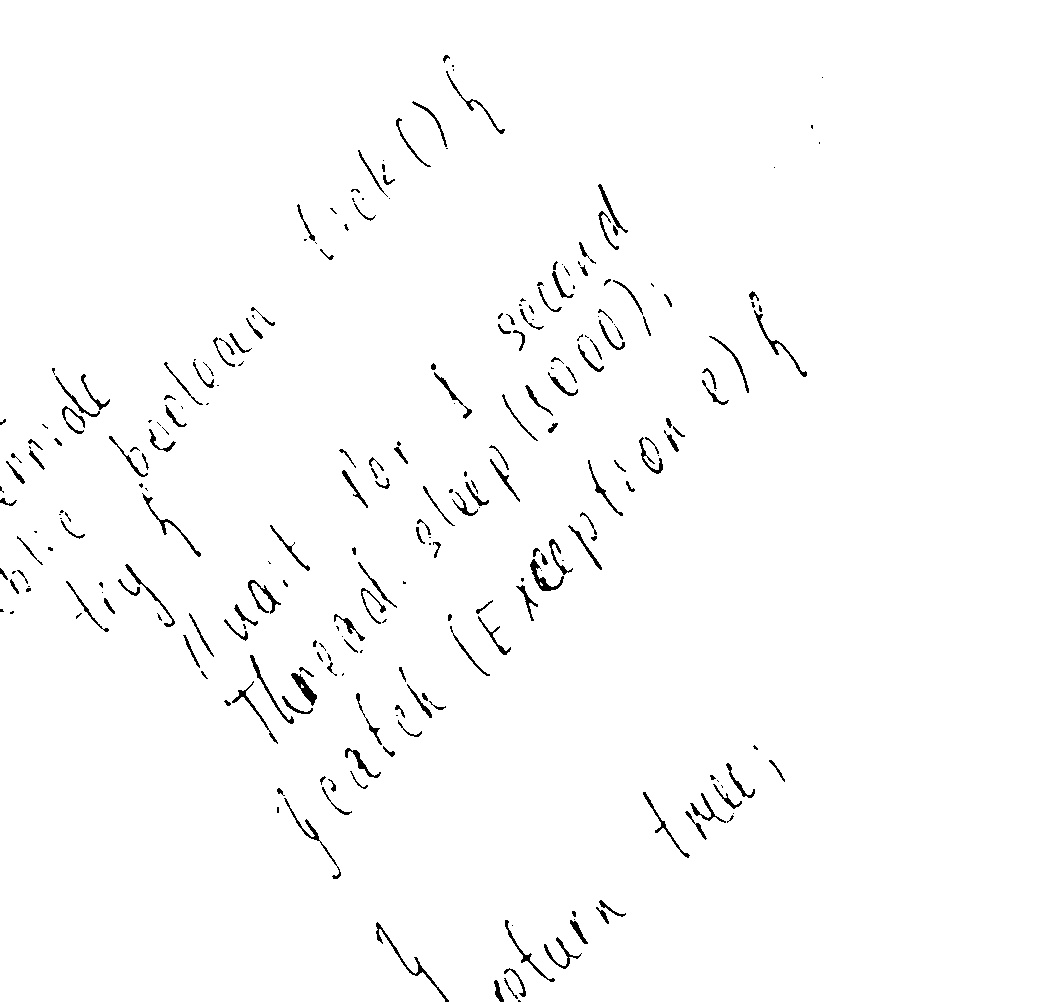 erride
public boolean tick() {
try {
// wait for 1 second
Thread.sleep(1000);
} catch (Exception e) {
}
return true;